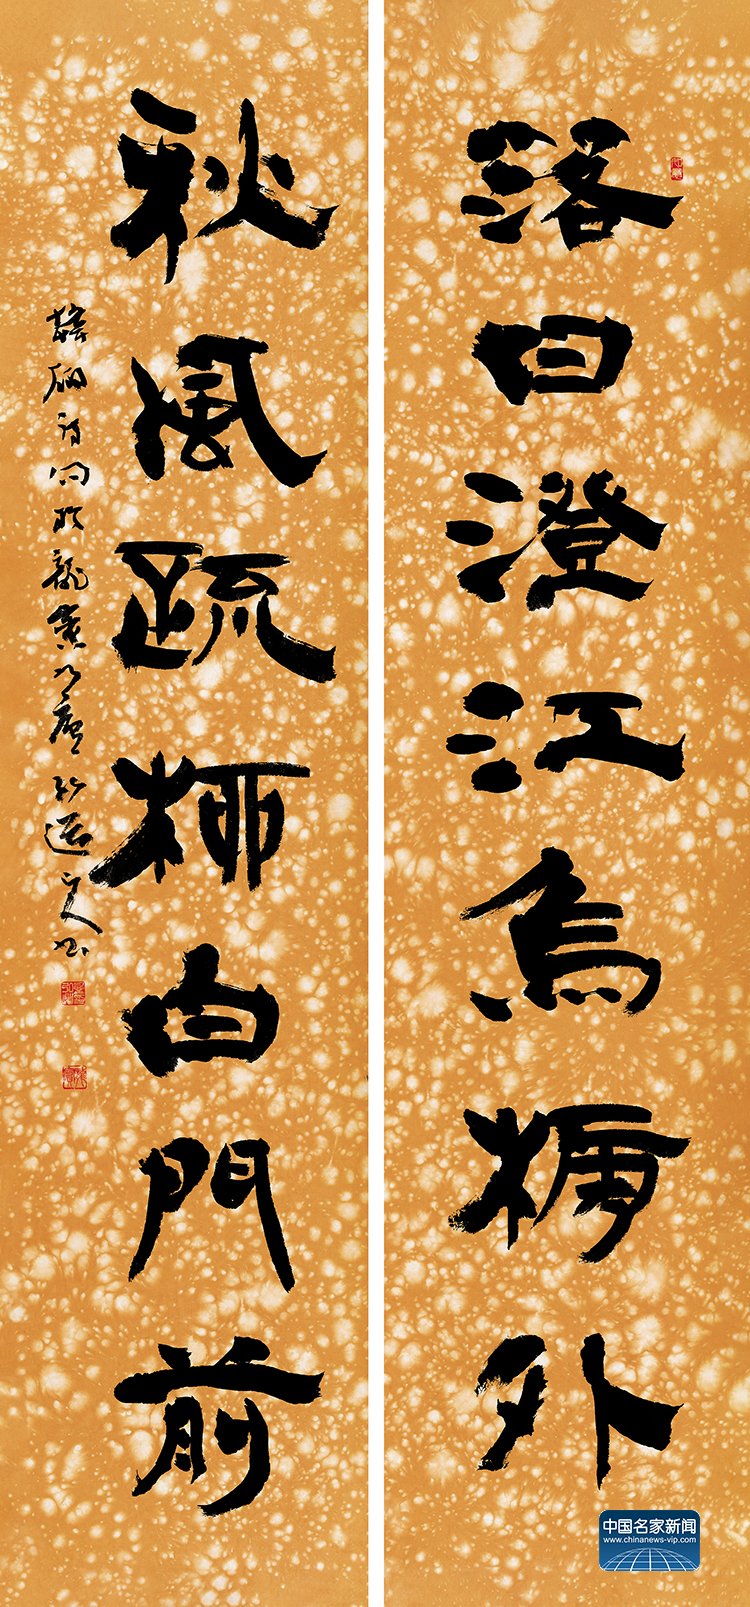 落日澄江烏榜外
秋風疏柳白門前
韓翃詩句於龍
中国名家新闻
www.chinanews-vip.com